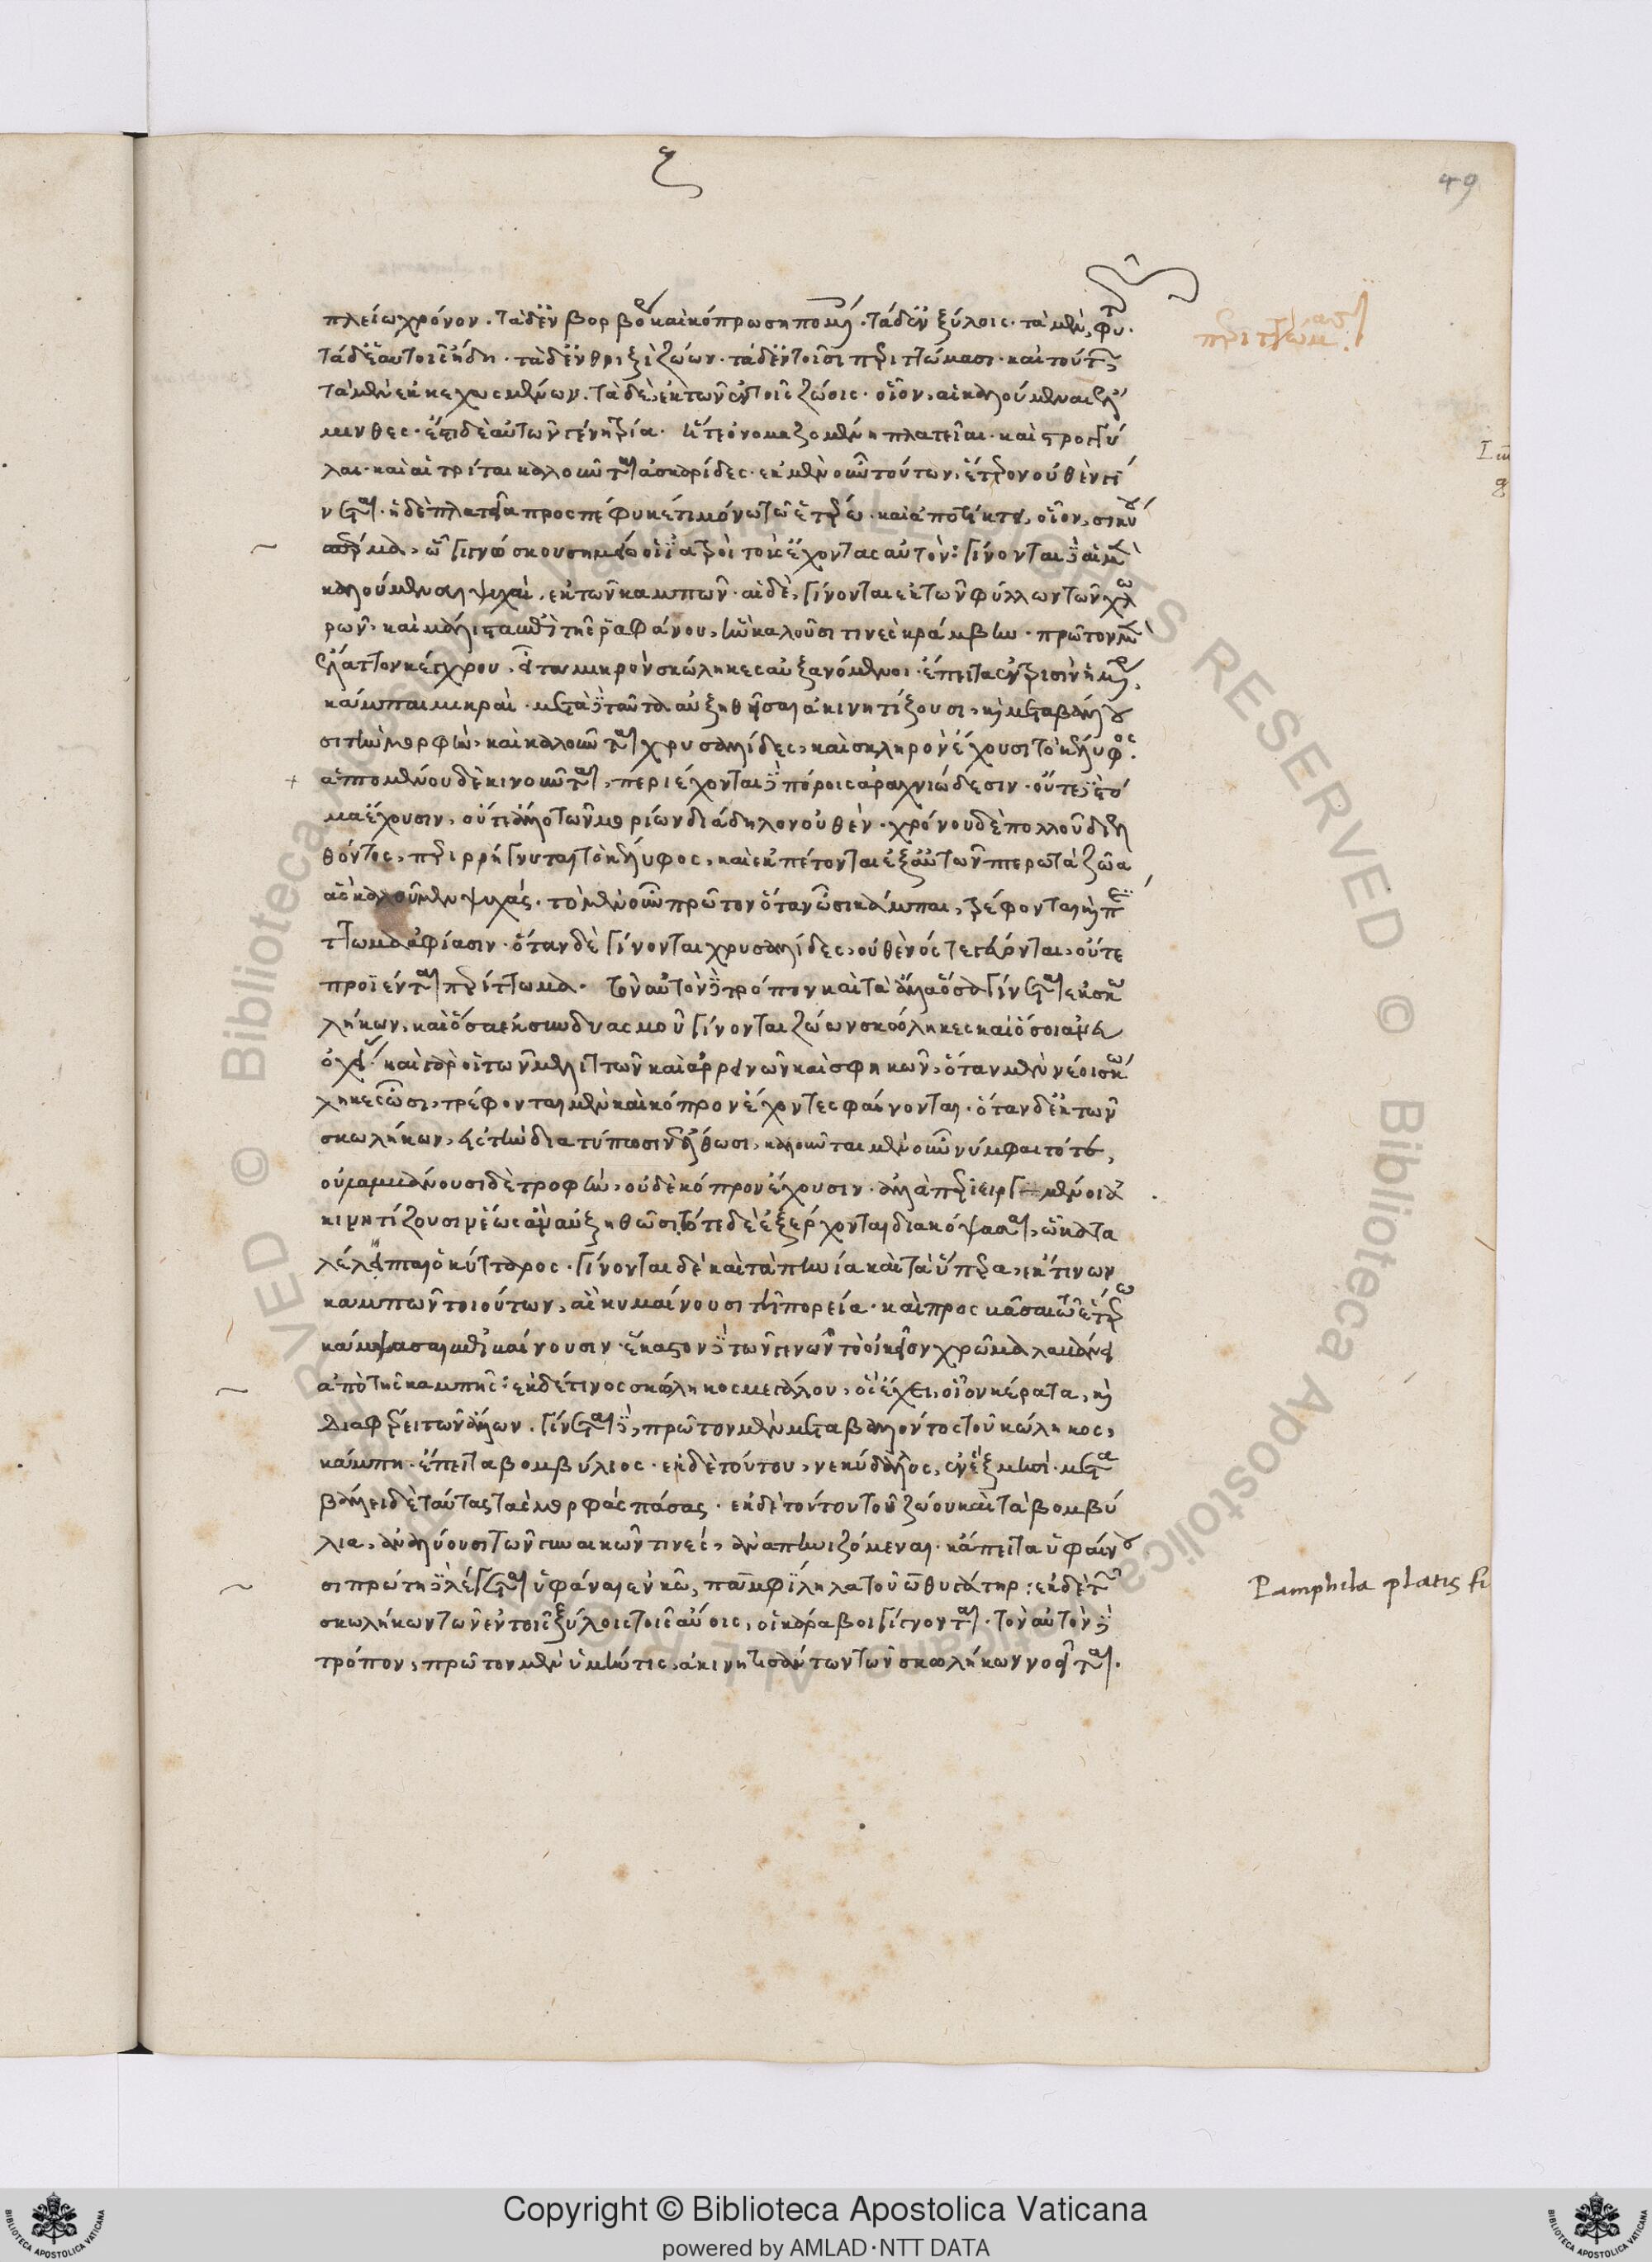 ζ
49
πλείω χρόνον. τὰ δ' ἐν βορβόρῳ καὶ κόπρω σηπομένη. τὰ δ' ἐν ξύλοις. τὰ μὲν, φυτῶν.
τὰ δὲ ἐν αὐτοῖς ἤδη. τὰ δ' ἐν θριξὶ ζώων. τὰ δ' ἐν τοῖσι περιττώμασι. καὶ τούτων
τὰ μὲν ἐκκεχωσμένων. τὰ δὲ, ἐκ τῶν ἐν τοῖς ζώοις. οἷον, αἱ καλούμεναι ἕλ
μινθες. ἔστι δὲ αὐτῶν γένη τρία. ἥτε ὀνομαζομένη πλατεῖαι. καὶ στρογγύ
λαι. καὶ αἱ τρίται καλοῦνται ἀσκαρίδες. ἐκ μὲν οὖν τούτων, ἕτερον οὐθὲν γί
νεται. ἡ δὲ πλατεῖα προσπέφυκέ τι μόνω τῶ ἑτέρω. καὶ ἀποτίκτει, οἷον, σικύου
σπέρμα, ὧ γιγνώσκουσι σημείω οἱ ἰατροὶ τοὺς ἔχοντας αὐτόν: γίνονται δὲ αἱ μὲν
καλούμεναι ψυχαὶ, ἐκ τῶν καμπῶν. αἱ δὲ, γίνονται ἐκ τῶν φύλλων τῶν χλω
ρῶν, καὶ μάλιστα ἐπὶ τῆς ῥαφάνου, ἣν καλοῦσι τινὲς κράμβην. πρῶτον μὲν
ἔλαττον κέγχρου, εἶτα μικροὶ σκώληκες αὐξανόμενοι. ἔπειτα ἐν τρισὶν ἡμέραις,
κάμπαι μικραί. μετὰ δὲ ταῦτα αὐξηθεῖσαι ἀκινητίζουσι, καὶ μεταβάλλου
σι τὴν μορφὴν, καὶ καλοῦνται χρυσαλλίδες, καὶ σκληρὸν ἔχουσι τὸ κέλυφος.
ἁπτομένου δὲ κινοῦνται, περιέχονται δὲ πόροις ἀραχνιώδεσιν. οὔτε δὲ στό
μα ἔχουσιν, οὔτε ἄλλο τῶν μορίων διάδηλον οὐθέν. χρόνου δὲ πολλοῦ διελ
θόντος, περιρρήγνυται τὸ κέλυφος, καὶ ἐκπέτονται ἐξ αὐτῶν πτερωτὰ ζῶα
ἃς καλοῦμεν ψυχάς. τὸ μὲν οὖν πρῶτον ὅταν ὦσι κάμπαι, τρέφονται καὶ περί
ττωμα ἀφίασιν. ὅταν δὲ γίνονται χρυσαλλίδες, οὐθενός τε γεύονται, οὔτε
προΐενται περίττωμα. τὸν αὐτὸν δὲ τρόπον καὶ τὰ ἄλλα ὅσα γίνεται ἐκ σκω
λήκων, καὶ ὅσα ἐκ συνδυασμοῦ γίνονται ζώων σκώληκες καὶ ὅσοι ἄνευ
ὀχείας. καὶ γὰρ οἱ τῶν μελιττῶν καὶ ἀρρενῶν καὶ σφηκῶν, ὅταν μὲν νέοι σκώ
ληκες ὦσι, τρέφονται μὲν καὶ κόπρον ἔχοντες φαίνονται. ὅταν δὲ ἐκ τῶν
σκωλήκων, εἰς τὴν διατύπωσιν ἔλθωσι, καλοῦνται μὲν οὖν νύμφαι τότε,
οὐ λαμβάνουσι δὲ τροφὴν, οὐδὲ κόπρον ἔχουσιν. ἀλλὰ περιειργμένοι ἀ
κινητίζουσιν ἕως ἂν αὐξηθῶσι. τότε δὲ ἐξέρχονται διακόψασαι, ὧ κατα
λέλειπται ὁ κύτταρος. γίνονται δὲ καὶ τὰ πηνία καὶ τὰ ὕπερα, ἔκ τινων
καμπῶν τοιούτων, αἳ κυμαίνουσι τῆ πορεία. καὶ προσβᾶσαι τῶ ἑτέρω
κάμψασαι ἐπιβαίνουσιν. ἕκαστον δὲ τῶν γενῶν τὸ οἰκεῖον χρῶμα λαμβάνει
ἀπὸ τῆς καμπῆς: ἐκ δέ τινος σκώληκος μεγάλου, ὃς ἔχει, οἷον κέρατα, καὶ
διαφέρει τῶν ἄλλων. γίνεται δὲ, πρῶτον μὲν μεταβάλλοντος τοῦ σκώληκος,
κάμπη. ἔπειτα βομβύλιος. ἐκ δὲ τούτου, νεκύδαλλος, ἐν ἓξ μησί. μετα
βάλλει δὲ ταύτας τὰς μορφὰς πάσας. ἐκ δὲ τούτου τοῦ ζώου καὶ τὰ βομβύ
λια, ἀναλύουσι τῶν γυναικῶν τινὲς, ἀναπηνιζόμεναι. κἄπειτα ὑφαίνου
σι πρώτη δὲ λέγεται ὑφάναι ἐν κῶ, παμφίλη λατούου θυγάτηρ: ἐκ δὲ τῶν
σκωλήκων τῶν ἐν τοῖς ξύλοις τοῖς αὔοις, οἱ κάραβοι γίγνονται. τὸν αὐτὸν δὲ
τρόπον, πρῶτον μὲν ἀκινητισάντων τῶν σκωλήκων
Pamphila platis fi